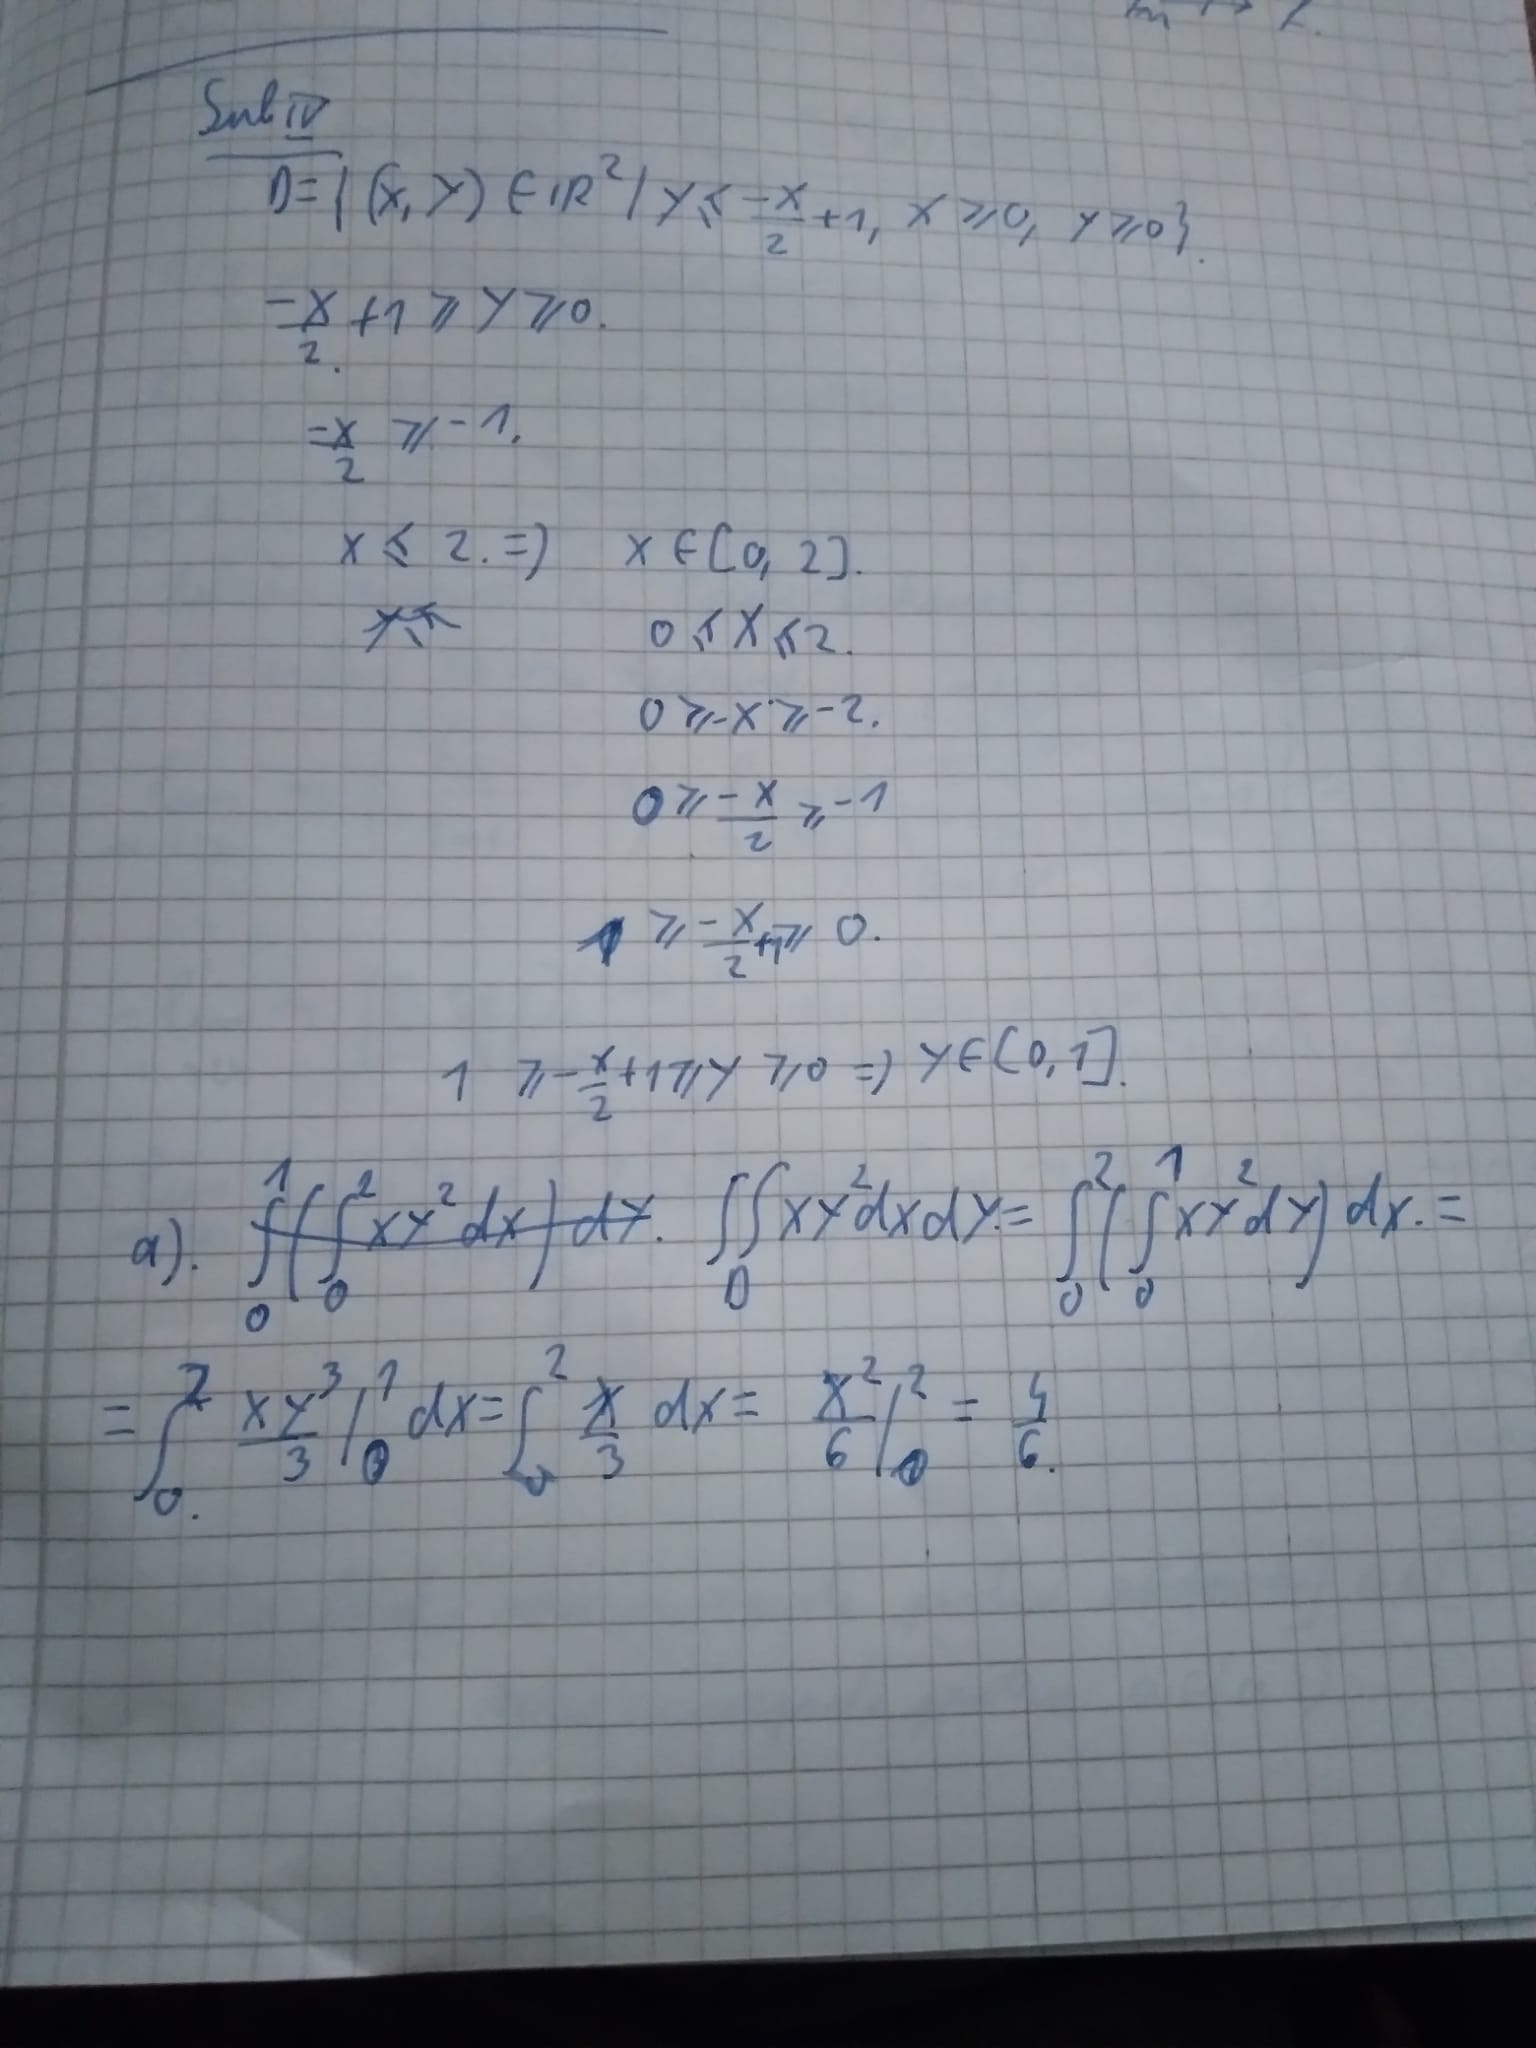 Sub IV
D = {(x, y) ∈ ℝ² | y ≤ -x/2 + 1, x ≥ 0, y ≥ 0}.
-x/2 + 1 ≥ y ≥ 0.
-x/2 ≥ -1.
x ≤ 2. => x ∈ [0, 2].
0 ≤ x ≤ 2.
0 ≥ -x ≥ -2.
0 ≥ -x/2 ≥ -1
1 ≥ -x/2 + 1 ≥ 0.
1 ≥ -x/2 + 1 ≥ y ≥ 0 => y ∈ [0, 1].
a). ∫₀¹(∫₀² xy² dx) dy. ∬_D xy² dx dy = ∫₀²(∫₀¹ xy² dy) dx. =
= ∫₀² xy³/3 |₀¹ dx = ∫₀² x/3 dx = x²/6 |₀² = 4/6.